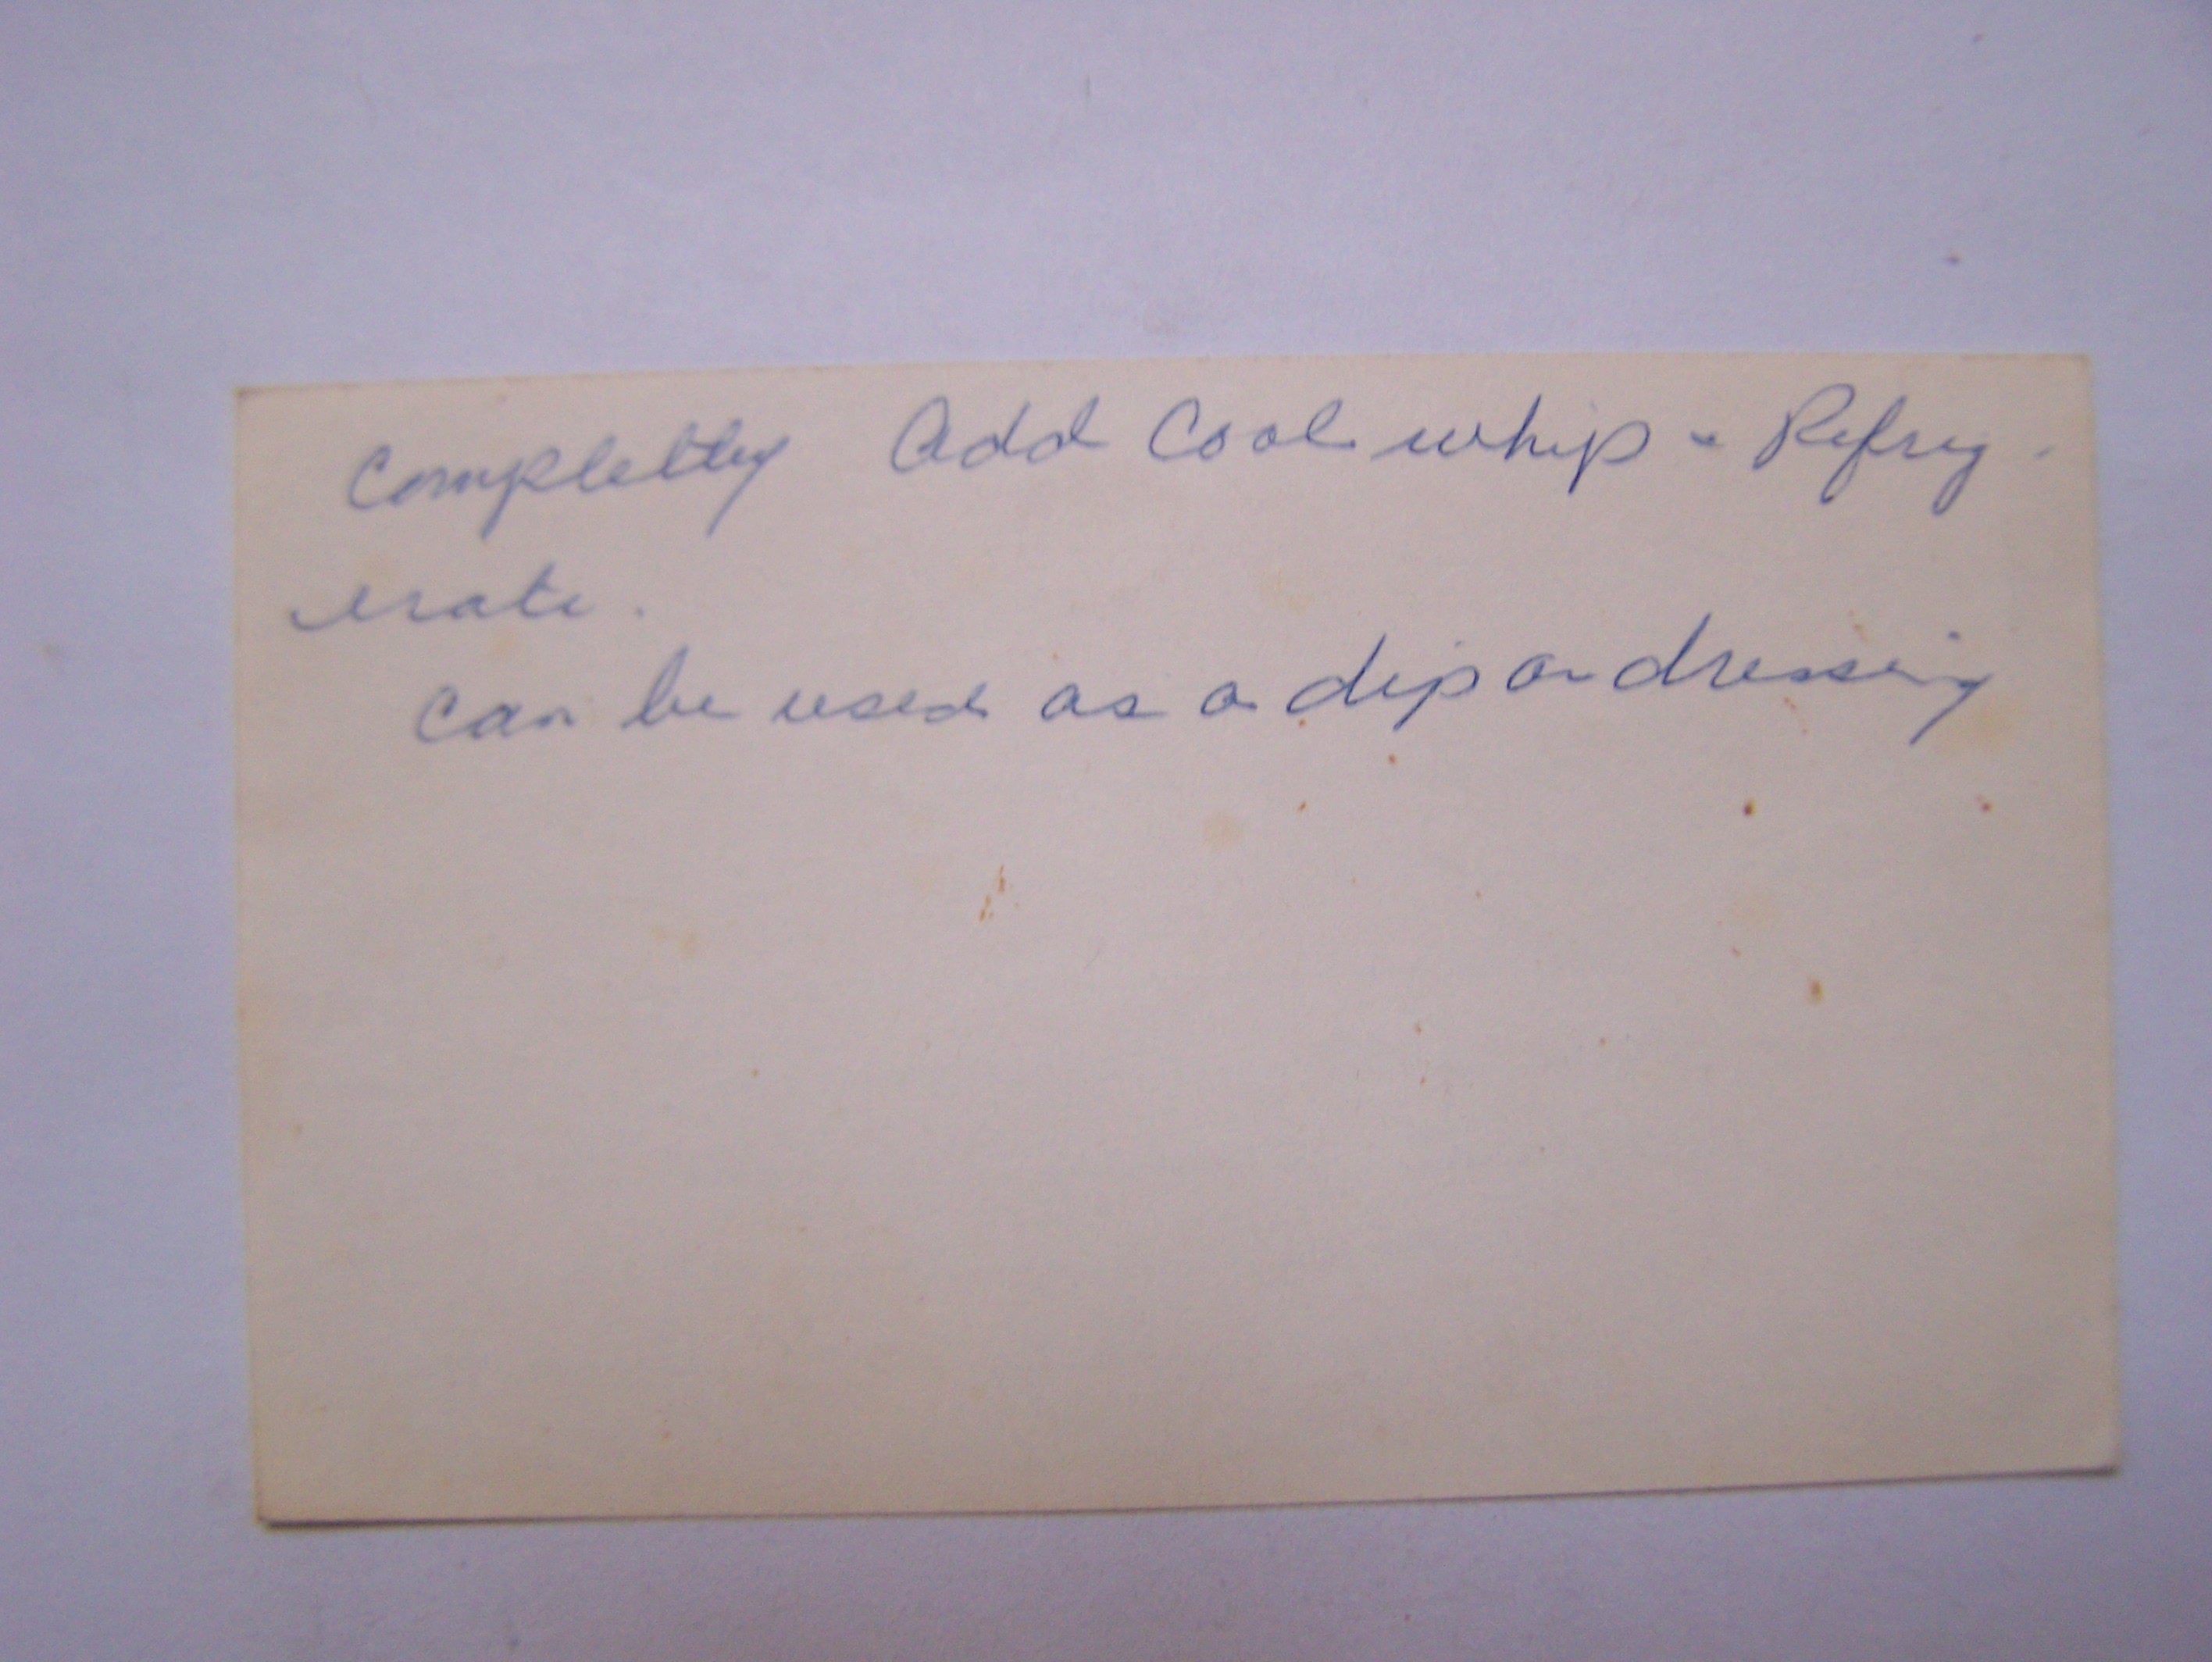 Completly Add Cool whip - Refrig -
erate.
Can be used as a dip or dressing